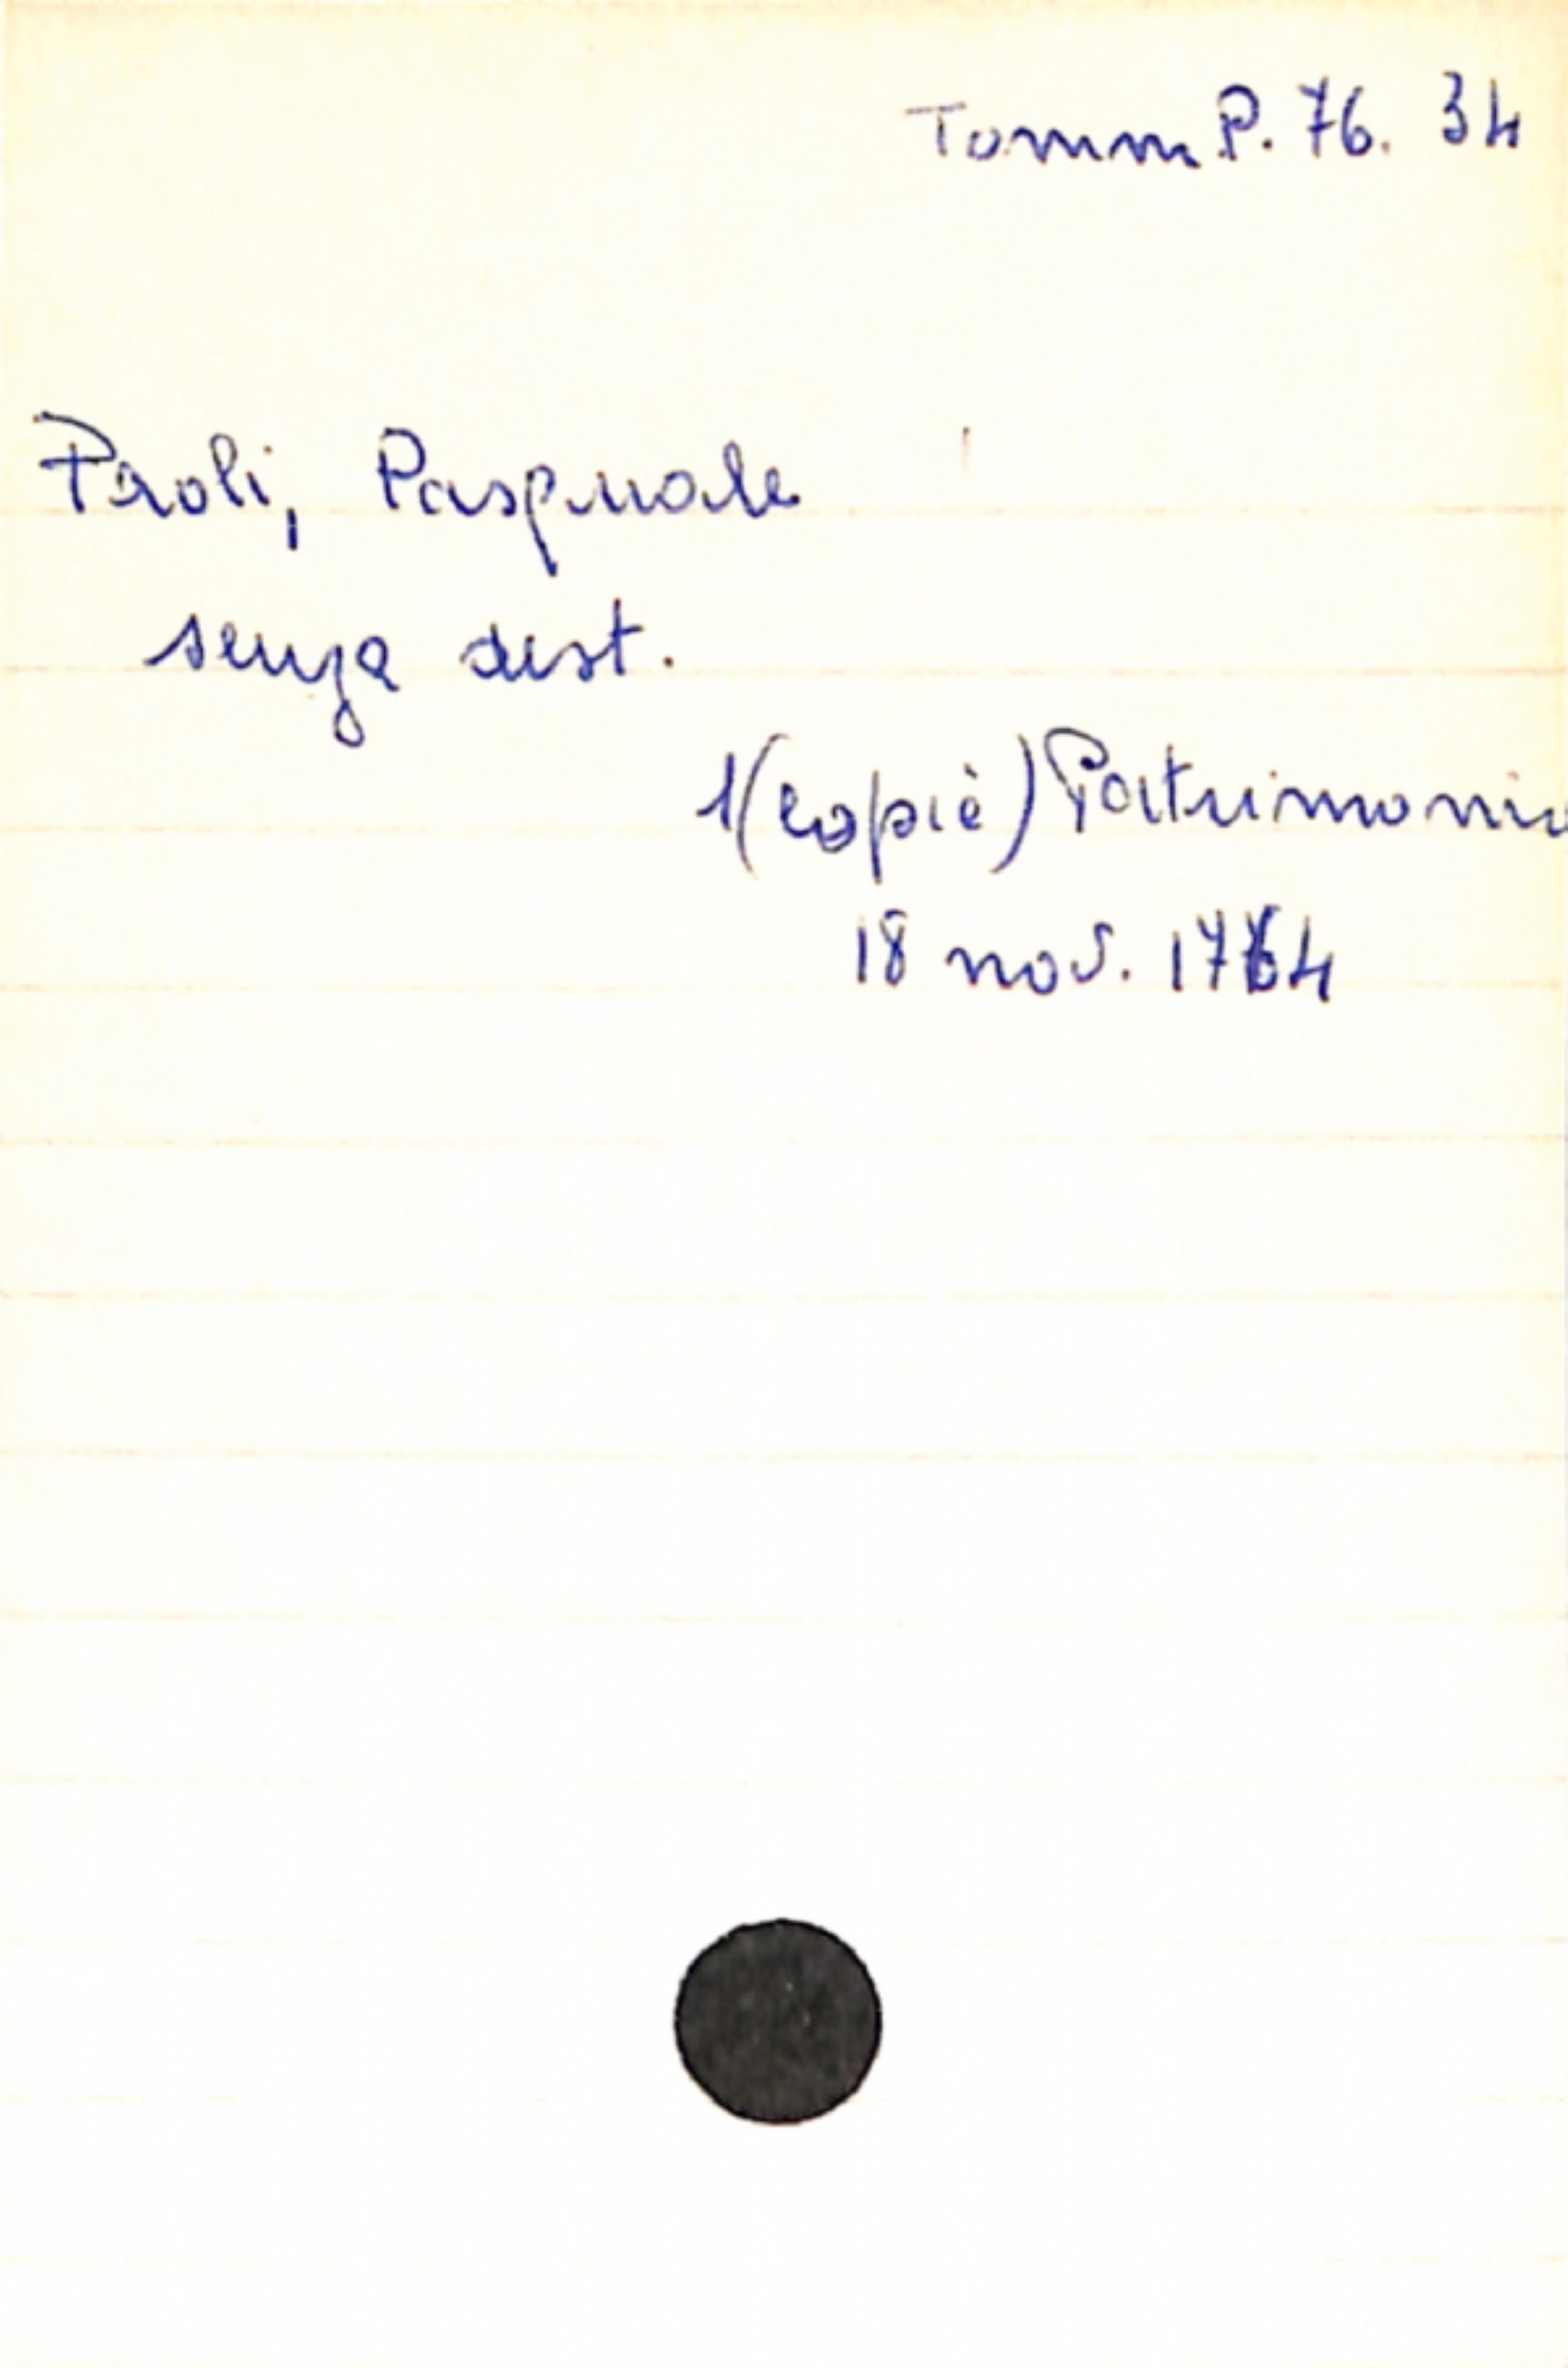 Tomm P. 76. 34
Paoli, Pasquale
senza dest.
1(copie) Patrimonio
18 nov. 1764